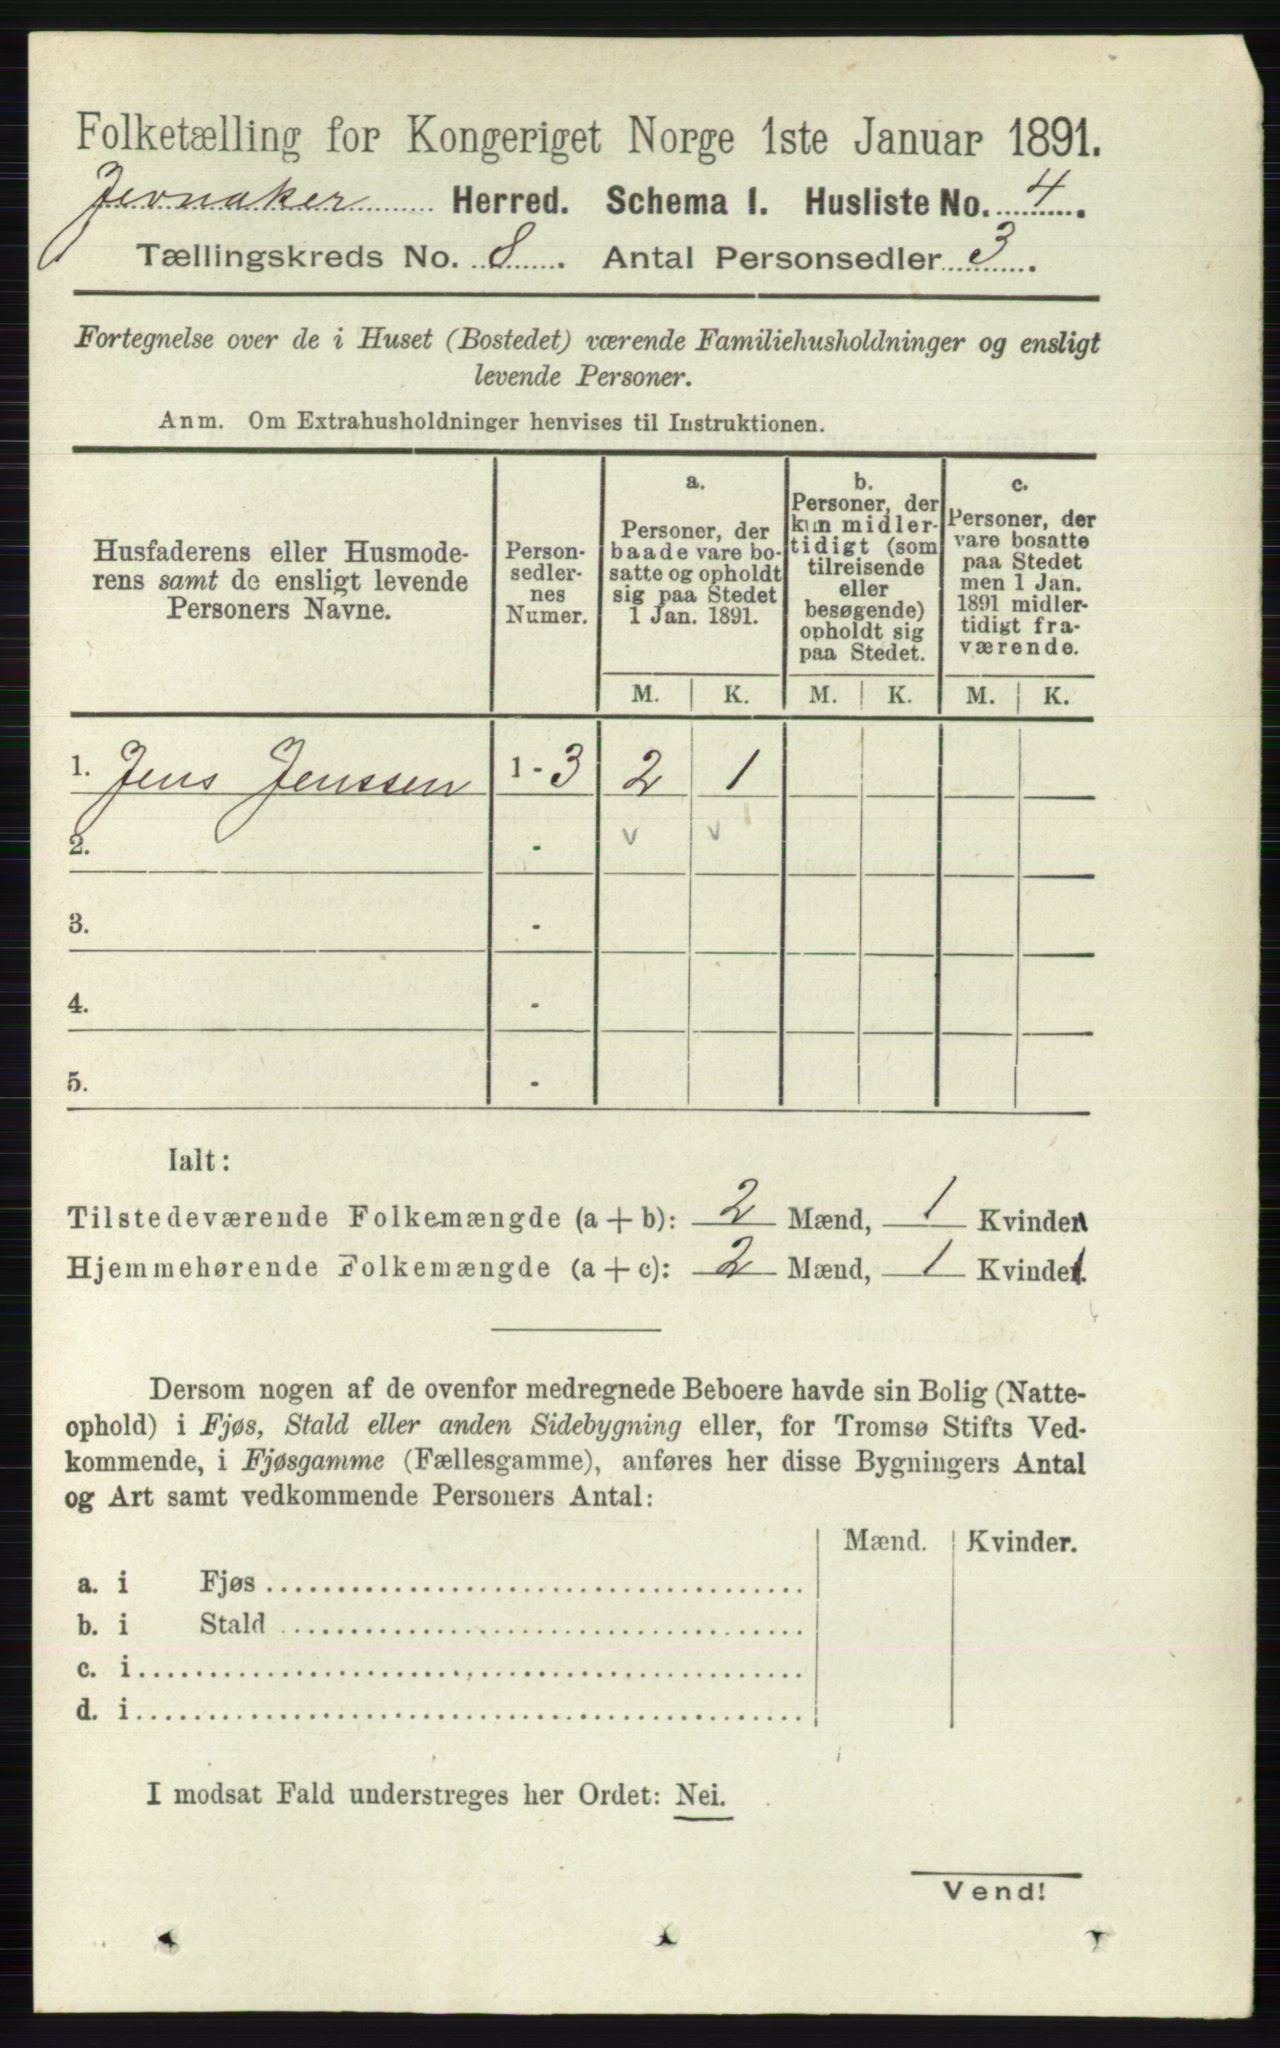 Folketælling for Kongeriget Norge 1ste Januar 1891.
Jevnaker Herred. Schema I. Husliste No. 4.
Tællingskreds No. 8. Antal Personsedler 3.
Fortegnelse over de i Huset (Bostedet) værende Familiehusholdninger og ensligt
levende Personer.
Anm. Om Extrahusholdninger henvises til Instruktionen.
Husfaderens eller Husmode-
rens samt de ensligt levende
Personers Navne.
Person-
sedler-
nes
Numer.
a.
Personer, der
baade vare bo-
satte og opholdt
sig paa Stedet
1 Jan. 1891.
b.
Personer, der
kun midler-
tidigt (som
tilreisende
eller
besøgende)
opholdt sig
paa Stedet.
c.
Personer, der
vare bosatte
paa Stedet
men 1 Jan.
1891 midler-
tidigt fra-
værende.
M. K. M. K. M. K.
1. Jens Jenssen 1-3 2 1
2. - v v
3. -
4. -
5. -
Ialt:
Tilstedeværende Folkemængde (a + b): 2 Mænd, 1 Kvinder
Hjemmehørende Folkemængde (a + c): 2 Mænd, 1 Kvinder.
Dersom nogen af de ovenfor medregnede Beboere havde sin Bolig (Natte-
ophold) i Fjøs, Stald eller anden Sidebygning eller, for Tromsø Stifts Ved-
kommende, i Fjøsgamme (Fællesgamme), anføres her disse Bygningers Antal
og Art samt vedkommende Personers Antal:
Mænd. Kvinder.
a. i Fjøs
b. i Stald
c. i
d. i
I modsat Fald understreges her Ordet: Nei.
Vend!